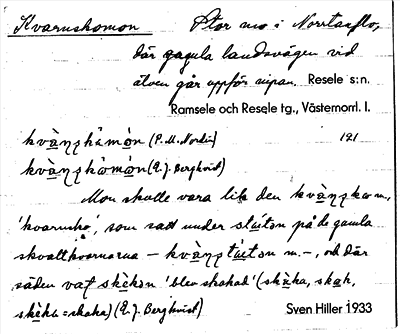 Kvarnskomon Stor mo i Norrtanflo,
där gamla landsvägen vid
älven går uppför nipan. Resele s:n.
Ramsele och Resele tg., Västernorrl. l.
kvàṇskòmòn (P. M. Nordin) 121
kvàṇskòmòn (E. J. Bergkvist)
Mon skulle vara lik den kvàṇsko m.,
'kvarnsko', som satt under stúton på de gamla
skvaltkvarnarna – kvàṇstúton m. –, och där
säden vaṭ skèkon 'blev skakad' (skäka, skak,
skèka = skaka) (E. J. Bergkvist) Sven Hiller 1933